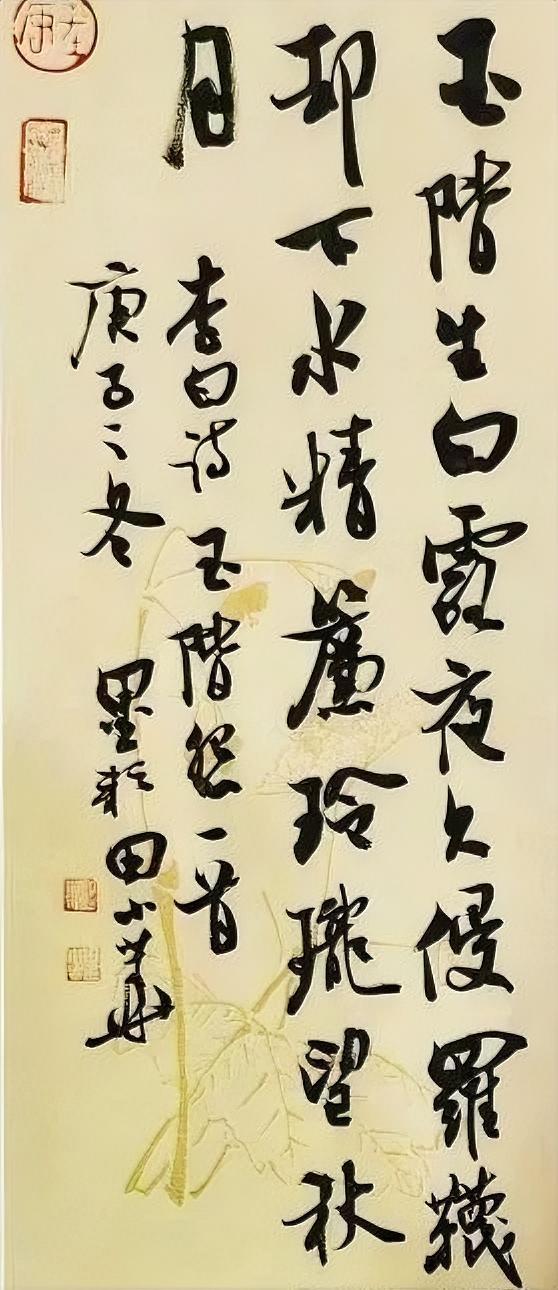 玉階生白露夜久侵羅襪
却下水精簾玲瓏望秋
月
李白詩玉階怨一首
庚子之冬
墨耘田小華